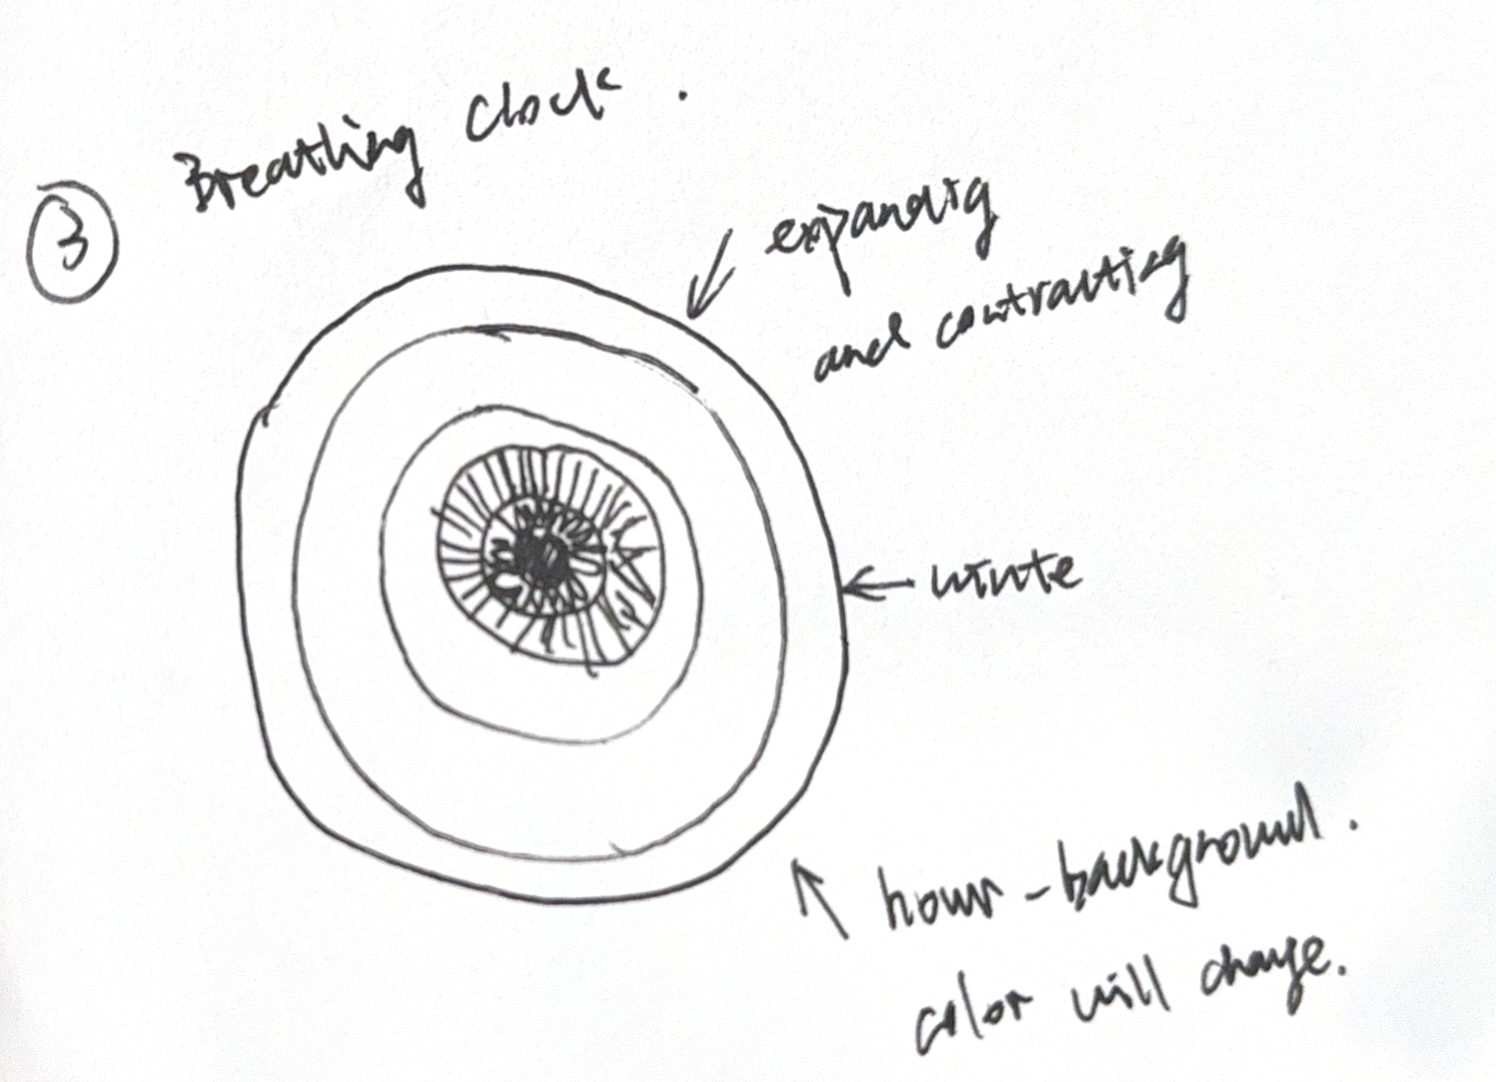 ③ Breathing Clock.
expandig
and contracting
← minute
hour - background.
color will change.